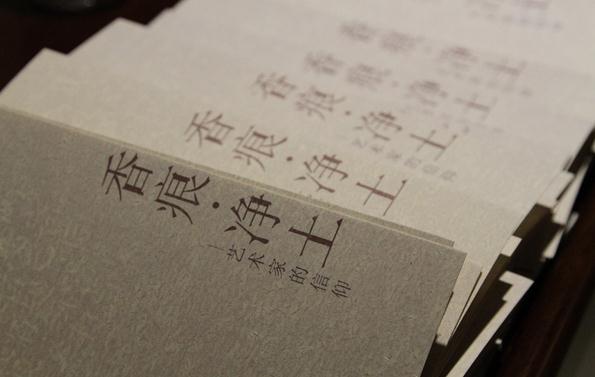 香痕·净土
—艺术家的信仰
香痕·净土
香痕·净土
艺术家的信仰
香痕·净土
香痕·净土